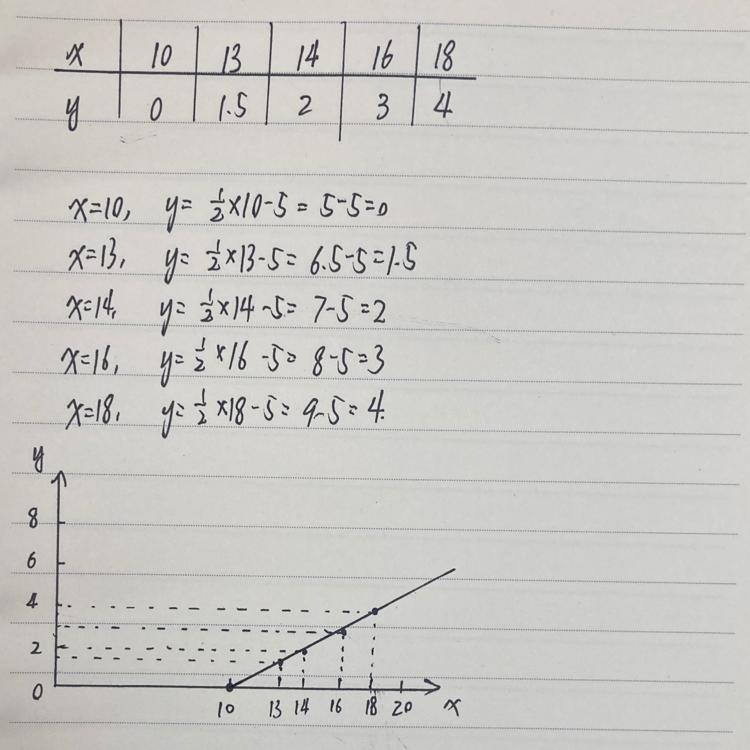 x 10 13 14 16 18
y 0 1.5 2 3 4
x=10, y= ½×10-5= 5-5=0
x=13, y= ½×13-5= 6.5-5=1.5
x=14, y= ½×14-5= 7-5=2
x=16, y= ½×16-5= 8-5=3
x=18, y= ½×18-5= 9-5=4.
y
8
6
4
2
0
10 13 14 16 18 20 x